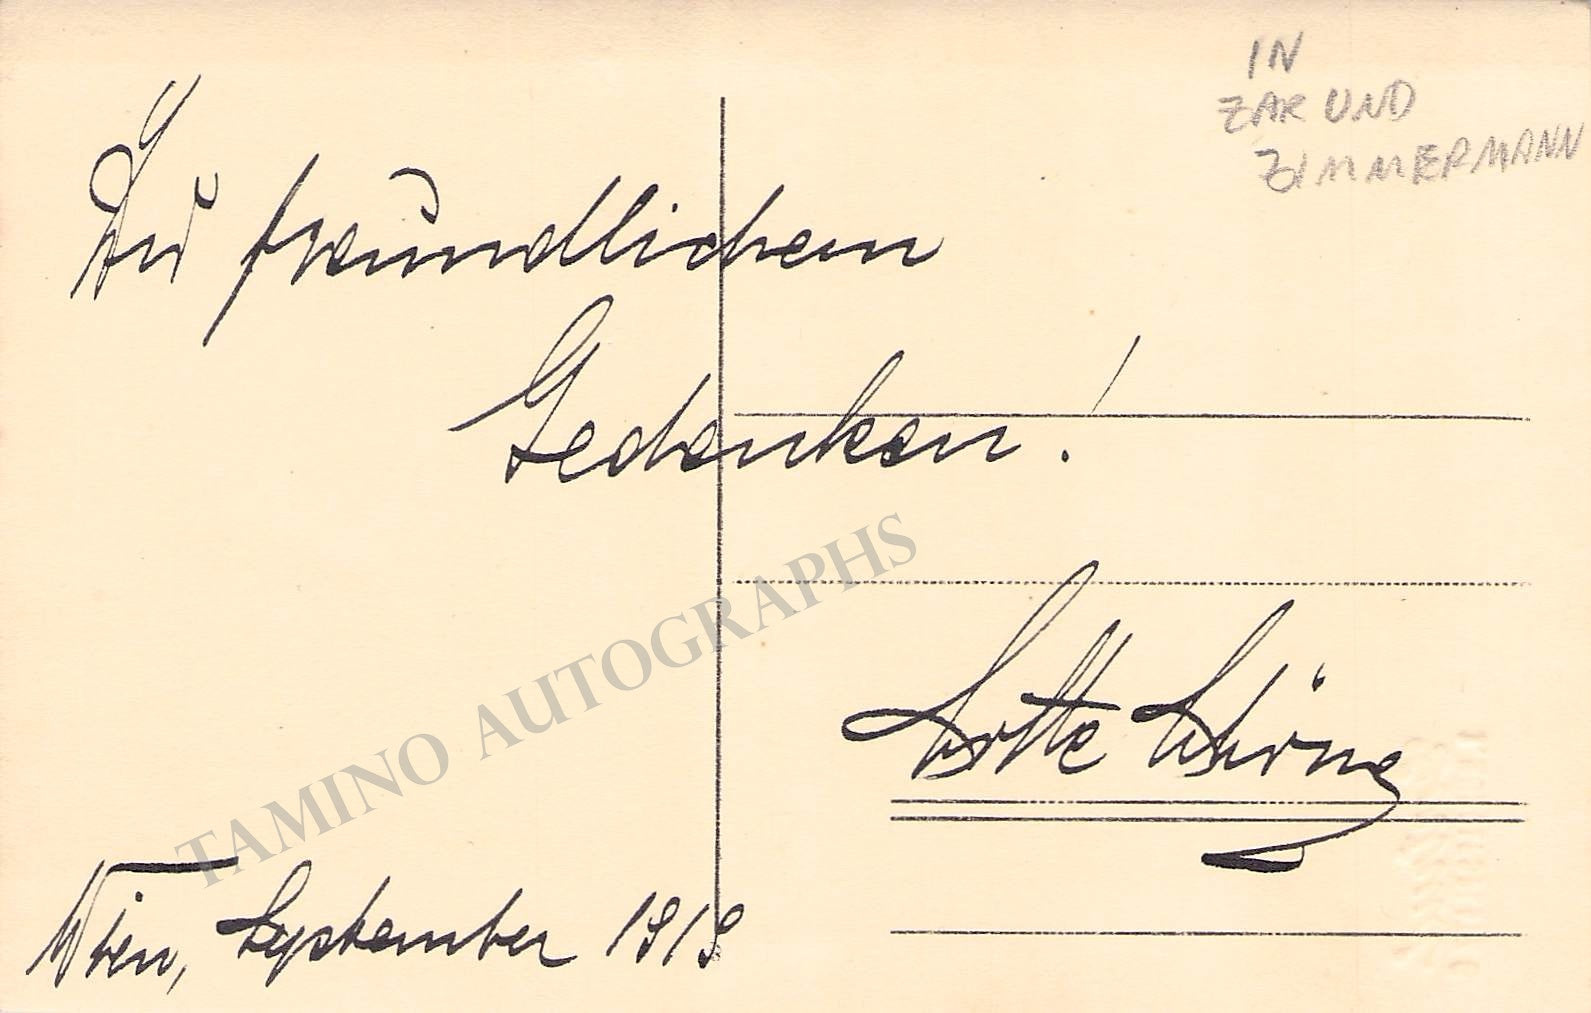 IN
ZAR UND
ZIMMERMANN
Zu freundlichem
Gedenken!
TAMINO AUTOGRAPHS
Lotte Schöne
Wien, September 1919